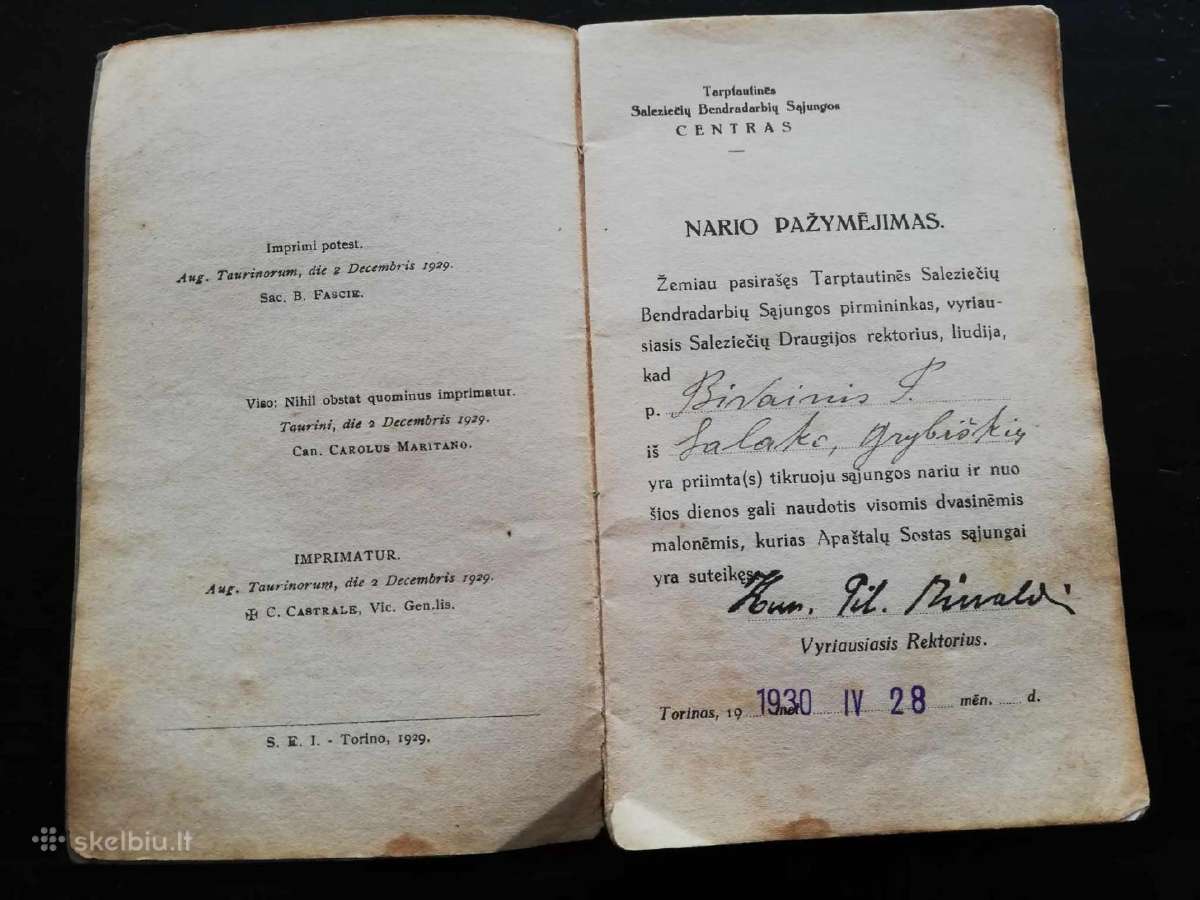 Imprimi potest.
Aug. Taurinorum, die 2 Decembris 1929.
Sac. B. Fascie.
Viso: Nihil obstat quominus imprimatur.
Taurini, die 2 Decembris 1929.
Can. Carolus Maritano.
IMPRIMATUR.
Aug. Taurinorum, die 2 Decembris 1929.
✠ C. Castrale, Vic. Gen.lis.
S. E. I. - Torino, 1929.
Tarptautinės
Saleziečių Bendradarbių Sąjungos
CENTRAS
NARIO PAŽYMĖJIMAS.
Žemiau pasirašęs Tarptautinės Saleziečių
Bendradarbių Sąjungos pirmininkas, vyriau-
siasis Saleziečių Draugijos rektorius, liudija,
kad
p. Bivainis P.
iš Salako, Grybiškių
yra priimta(s) tikruoju sąjungos nariu ir nuo
šios dienos gali naudotis visomis dvasinėmis
malonėmis, kurias Apaštalų Sostas sąjungai
yra suteikęs.
Kun. Pil. Rinaldi
Vyriausiasis Rektorius.
Torinas, 19 1930 IV 28 mėn. d.
skelbiu.lt